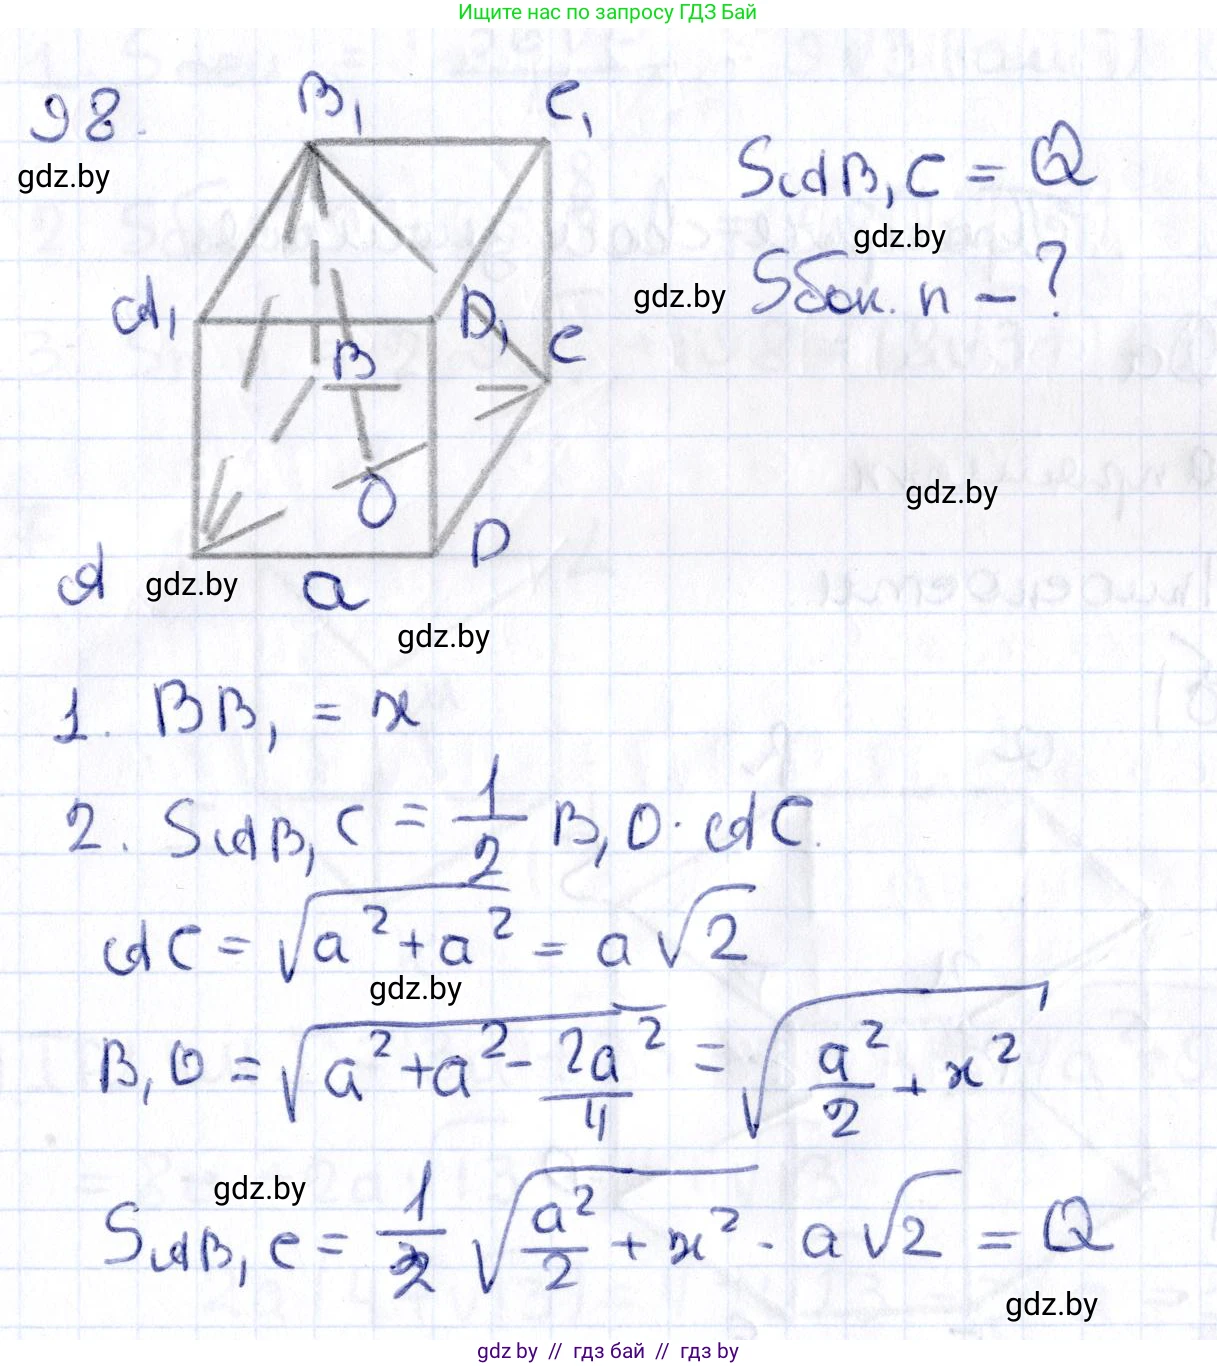 Ищите нас по запросу ГДЗ Бай
98.
B₁ C₁
gdz.by
S_AB₁C = Q
gdz.by
A₁ D₁ gdz.by Sбок. п – ?
B C
gdz.by
O
A gdz.by a D
gdz.by
1. BB₁ = x
2. S_AB₁C = 1/2 B₁O · AC.
AC = √(a² + a²) = a√2
gdz.by
B₁O = √(a² + a² - 2a²/4) = √(a²/2 + x²)
gdz.by
S_AB₁C = 1/2 √(a²/2 + x²) · a√2 = Q
gdz.by
gdz.by // гдз бай // gdz.by